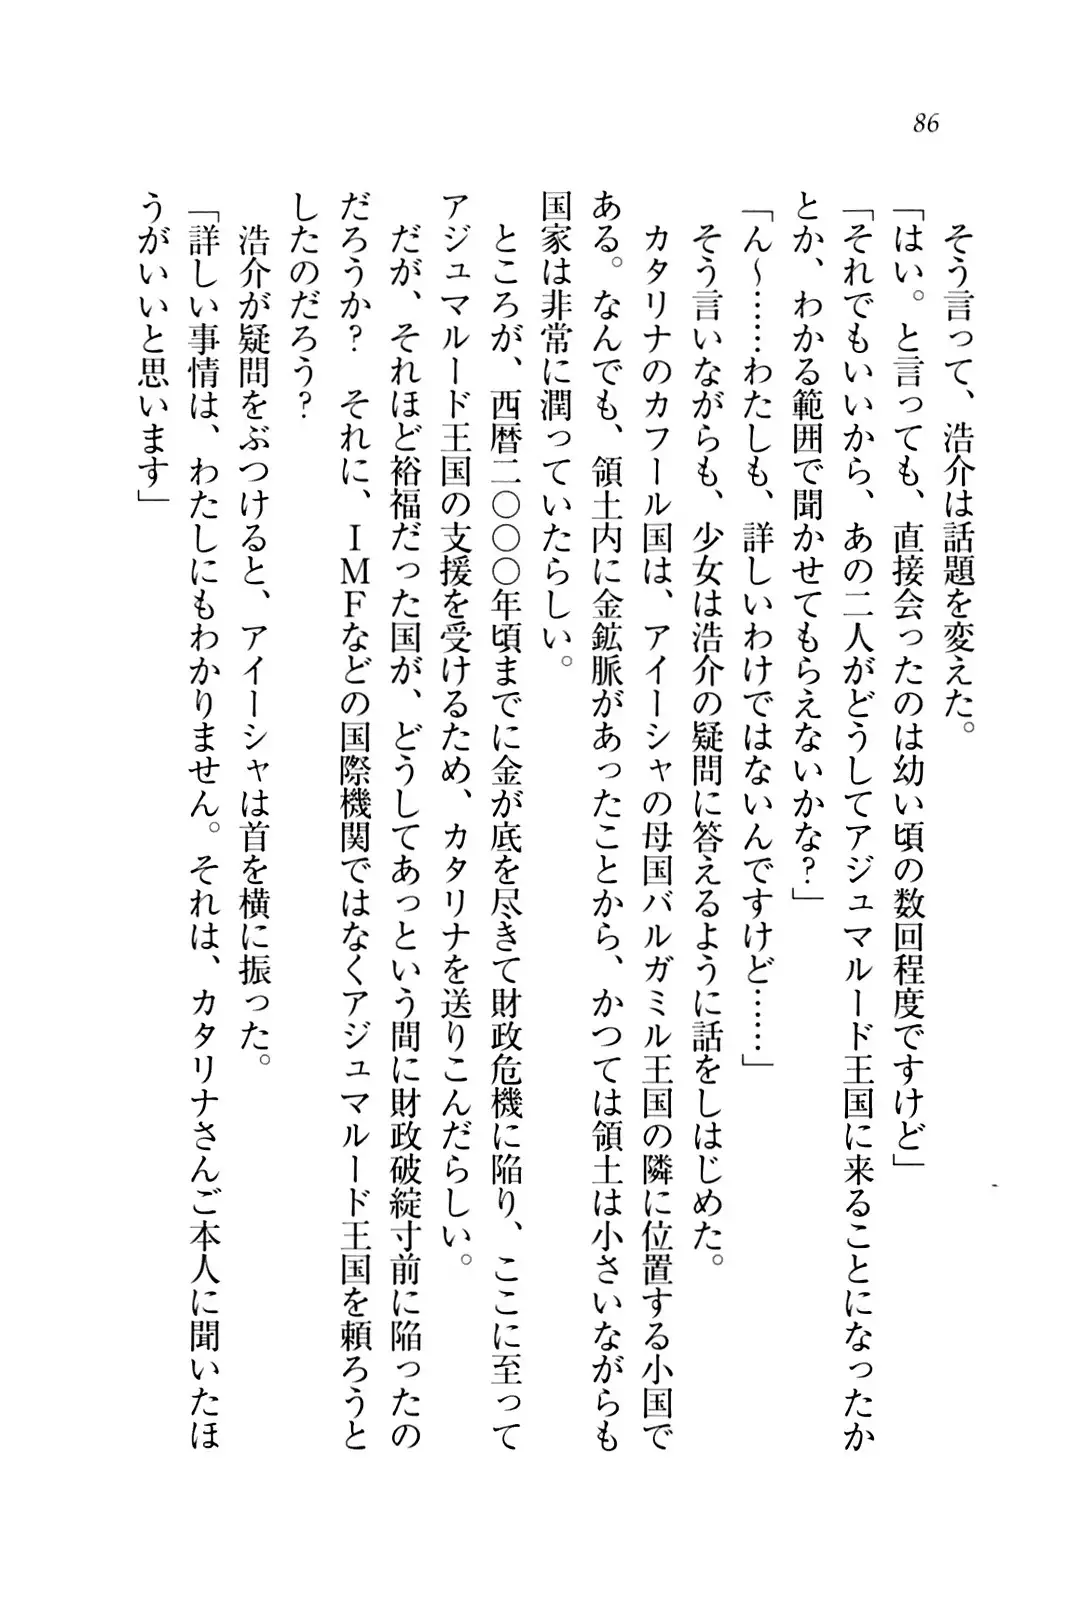 86
　そう言って、浩介は話題を変えた。
「はい。と言っても、直接会ったのは幼い頃の数回程度ですけど」
「それでもいいから、あの二人がどうしてアジュマルード王国に来ることになったか
とか、わかる範囲で聞かせてもらえないかな？」
「ん～……わたしも、詳しいわけではないんですけど……」
　そう言いながらも、少女は浩介の疑問に答えるように話をしはじめた。
　カタリナのカフール国は、アイーシャの母国バルガミル王国の隣に位置する小国で
ある。なんでも、領土内に金鉱脈があったことから、かつては領土は小さいながらも
国家は非常に潤っていたらしい。
　ところが、西暦二〇〇〇年頃までに金が底を尽きて財政危機に陥り、ここに至って
アジュマルード王国の支援を受けるため、カタリナを送りこんだらしい。
　だが、それほど裕福だった国が、どうしてあっという間に財政破綻寸前に陥ったの
だろうか？　それに、ＩＭＦなどの国際機関ではなくアジュマルード王国を頼ろうと
したのだろう？
　浩介が疑問をぶつけると、アイーシャは首を横に振った。
「詳しい事情は、わたしにもわかりません。それは、カタリナさんご本人に聞いたほ
うがいいと思います」